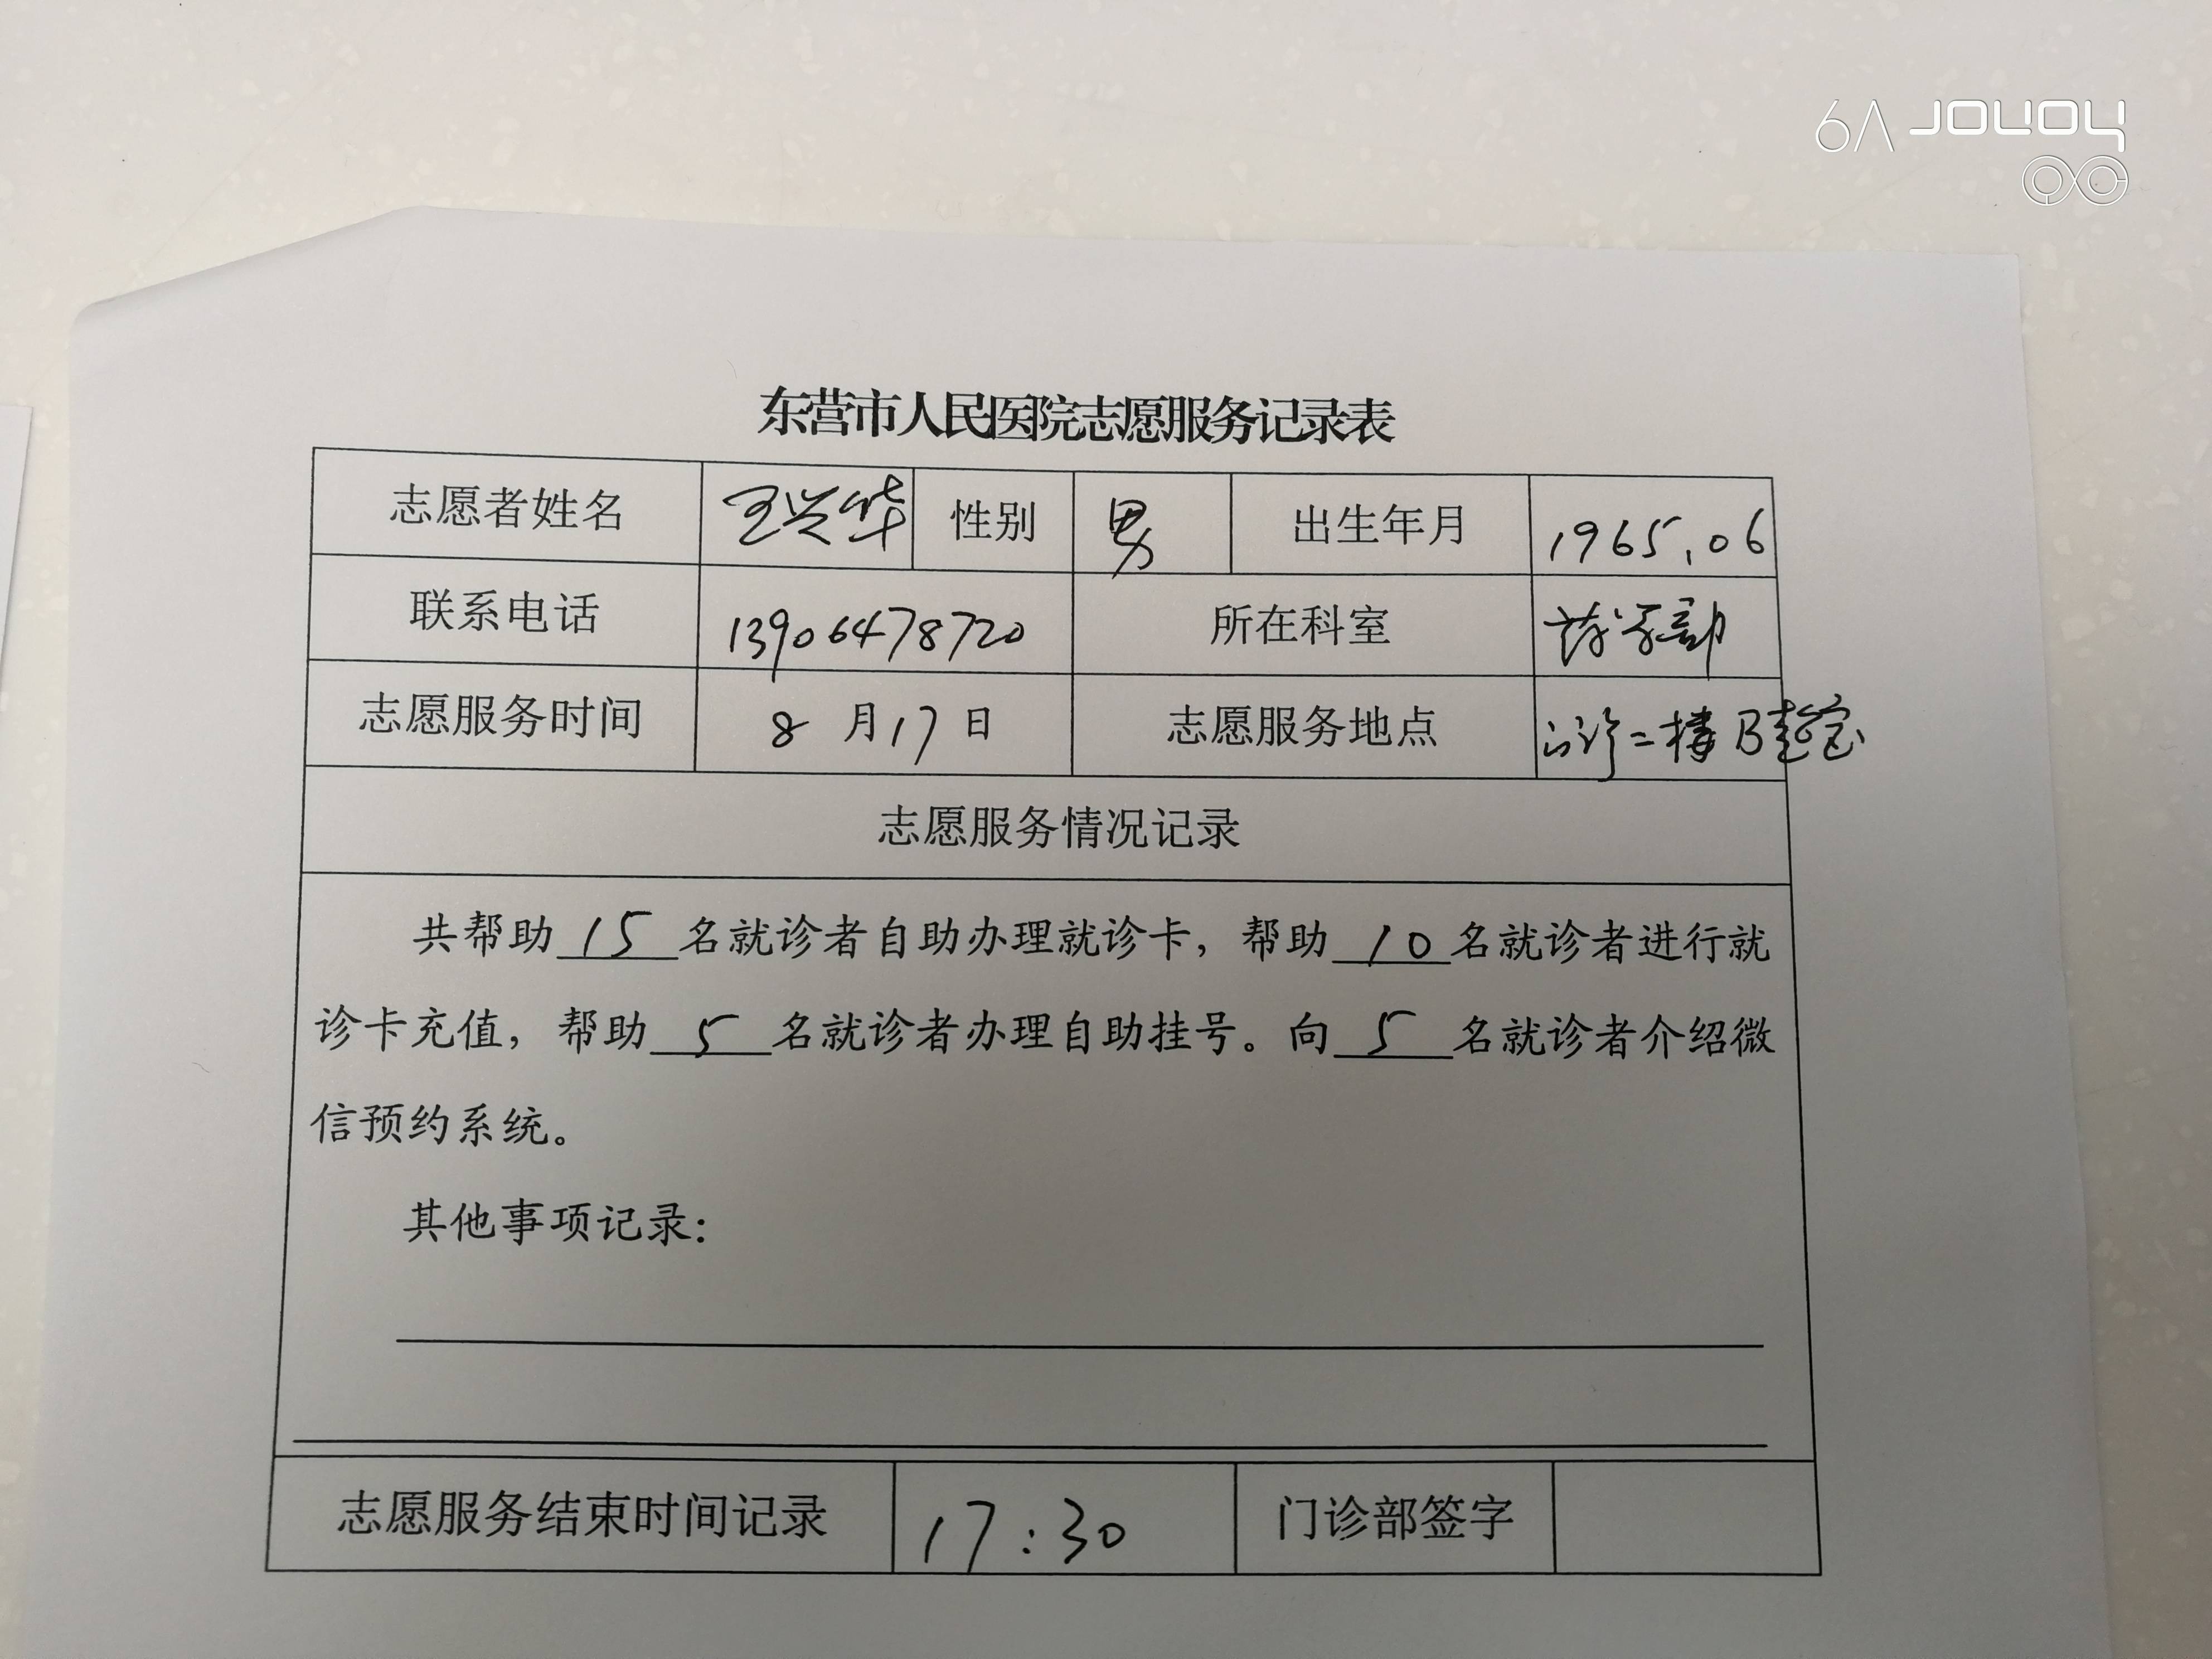 honor V9
东营市人民医院志愿服务记录表
志愿者姓名 王兴华 性别 男 出生年月 1965.06
联系电话 13906478720 所在科室
志愿服务时间 8月17日 志愿服务地点 门诊二楼B超室
志愿服务情况记录
共帮助 15 名就诊者自助办理就诊卡，帮助 10 名就诊者进行就
诊卡充值，帮助 5 名就诊者办理自助挂号。向 5 名就诊者介绍微
信预约系统。
其他事项记录：
志愿服务结束时间记录 17:30 门诊部签字